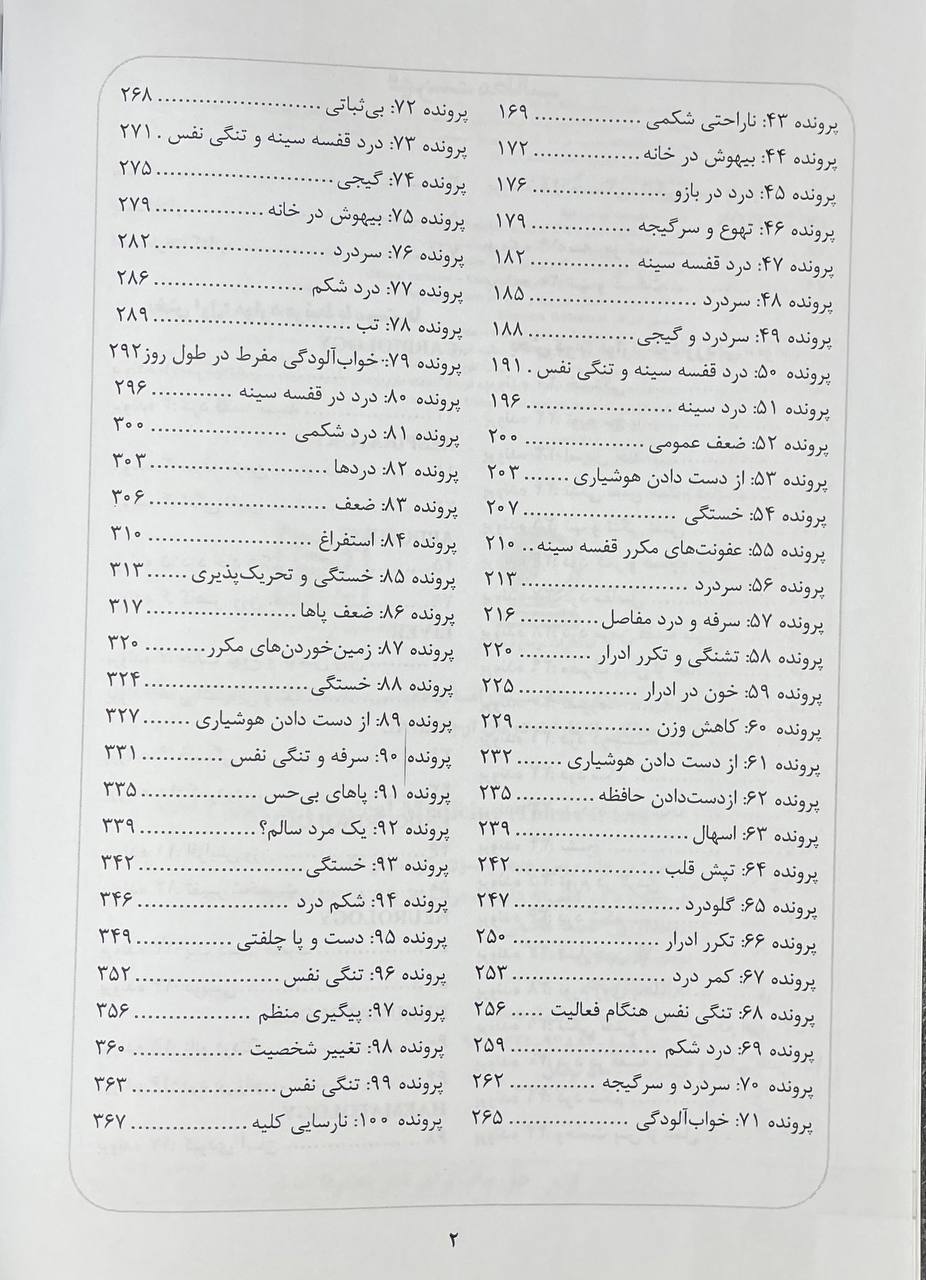 پرونده ۴۳: ناراحتی شکمی ................ ۱۶۹
پرونده ۴۴: بیهوش در خانه ................ ۱۷۲
پرونده ۴۵: درد در بازو .................... ۱۷۶
پرونده ۴۶: تهوع و سرگیجه ................ ۱۷۹
پرونده ۴۷: درد قفسه سینه ............... ۱۸۲
پرونده ۴۸: سردرد ......................... ۱۸۵
پرونده ۴۹: سردرد و گیجی ................ ۱۸۸
پرونده ۵۰: درد قفسه سینه و تنگی نفس . ۱۹۱
پرونده ۵۱: درد سینه ...................... ۱۹۶
پرونده ۵۲: ضعف عمومی .................. ۲۰۰
پرونده ۵۳: از دست دادن هوشیاری ....... ۲۰۳
پرونده ۵۴: خستگی ....................... ۲۰۷
پرونده ۵۵: عفونت‌های مکرر قفسه سینه .. ۲۱۰
پرونده ۵۶: سردرد ......................... ۲۱۳
پرونده ۵۷: سرفه و درد مفاصل ............ ۲۱۶
پرونده ۵۸: تشنگی و تکرر ادرار ........... ۲۲۰
پرونده ۵۹: خون در ادرار .................. ۲۲۵
پرونده ۶۰: کاهش وزن .................... ۲۲۹
پرونده ۶۱: از دست دادن هوشیاری ....... ۲۳۲
پرونده ۶۲: ازدست‌دادن حافظه ............ ۲۳۵
پرونده ۶۳: اسهال .......................... ۲۳۹
پرونده ۶۴: تپش قلب ...................... ۲۴۲
پرونده ۶۵: گلودرد ......................... ۲۴۷
پرونده ۶۶: تکرر ادرار ...................... ۲۵۰
پرونده ۶۷: کمر درد ....................... ۲۵۳
پرونده ۶۸: تنگی نفس هنگام فعالیت ..... ۲۵۶
پرونده ۶۹: درد شکم ...................... ۲۵۹
پرونده ۷۰: سردرد و سرگیجه ............. ۲۶۲
پرونده ۷۱: خواب‌آلودگی .................. ۲۶۵
پرونده ۷۲: بی‌ثباتی ........................ ۲۶۸
پرونده ۷۳: درد قفسه سینه و تنگی نفس . ۲۷۱
پرونده ۷۴: گیجی ........................... ۲۷۵
پرونده ۷۵: بیهوش در خانه ................ ۲۷۹
پرونده ۷۶: سردرد ......................... ۲۸۲
پرونده ۷۷: درد شکم ...................... ۲۸۶
پرونده ۷۸: تب .............................. ۲۸۹
پرونده ۷۹: خواب‌آلودگی مفرط در طول روز۲۹۲
پرونده ۸۰: درد در قفسه سینه ............ ۲۹۶
پرونده ۸۱: درد شکمی .................... ۳۰۰
پرونده ۸۲: دردها .......................... ۳۰۳
پرونده ۸۳: ضعف .......................... ۳۰۶
پرونده ۸۴: استفراغ ........................ ۳۱۰
پرونده ۸۵: خستگی و تحریک‌پذیری ...... ۳۱۳
پرونده ۸۶: ضعف پاها ...................... ۳۱۷
پرونده ۸۷: زمین‌خوردن‌های مکرر ......... ۳۲۰
پرونده ۸۸: خستگی ........................ ۳۲۴
پرونده ۸۹: از دست دادن هوشیاری ....... ۳۲۷
پرونده ۹۰: سرفه و تنگی نفس ............ ۳۳۱
پرونده ۹۱: پاهای بی‌حس ................. ۳۳۵
پرونده ۹۲: یک مرد سالم؟ ................. ۳۳۹
پرونده ۹۳: خستگی ........................ ۳۴۲
پرونده ۹۴: شکم درد ...................... ۳۴۶
پرونده ۹۵: دست و پا چلفتی .............. ۳۴۹
پرونده ۹۶: تنگی نفس ..................... ۳۵۲
پرونده ۹۷: پیگیری منظم .................. ۳۵۶
پرونده ۹۸: تغییر شخصیت ................ ۳۶۰
پرونده ۹۹: تنگی نفس ..................... ۳۶۳
پرونده ۱۰۰: نارسایی کلیه ................. ۳۶۷
۲